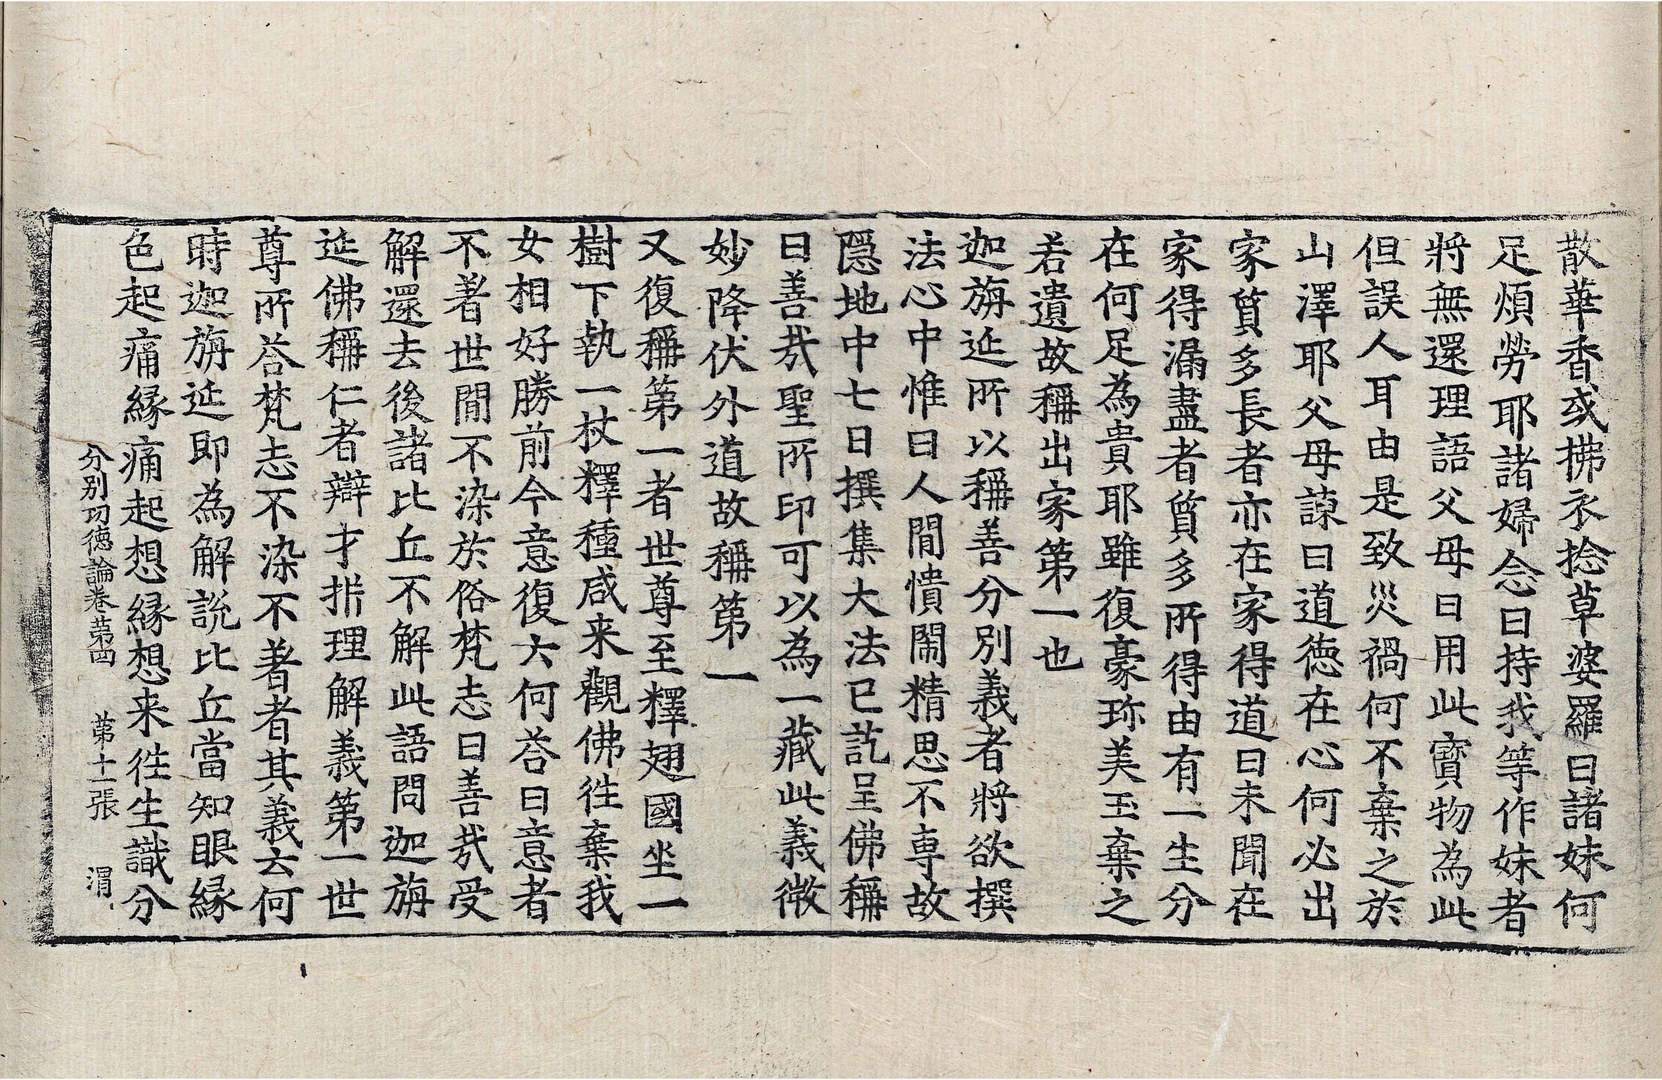 散華香或拂衣捻草婆羅曰諸妹何
足煩勞耶諸婦念曰持我等作妹者
將無還理語父母曰用此寶物為此
但誤人耳由是致災禍何不棄之於
山澤耶父母諫曰道徳在心何必出
家質多長者亦在家得道曰未聞在
家得漏盡者質多所得由有一生分
在何足為貴耶雖復豪珎美玉棄之
若遺故稱出家第一也
迦旃延所以稱善分別義者將欲撰
法心中惟曰人閒憒鬧精思不專故
隠地中七日撰集大法已訖呈佛稱
曰善㢤聖所印可以為一藏此義微
妙降伏外道故稱第一
又復稱第一者世尊至釋翅國坐一
樹下執一杖釋種咸来觀佛徃棄我
女相好勝前今意復云何荅曰意者
不著世閒不染於俗梵志曰善㢤受
解還去後諸比丘不解此語問迦旃
延佛稱仁者辯才析理解義第一世
尊所荅梵志不染不著者其義云何
時迦旃延即為解說比丘當知眼縁
色起痛縁痛起想縁想来徃生識分
分別功徳論卷第四 第十一張 渭